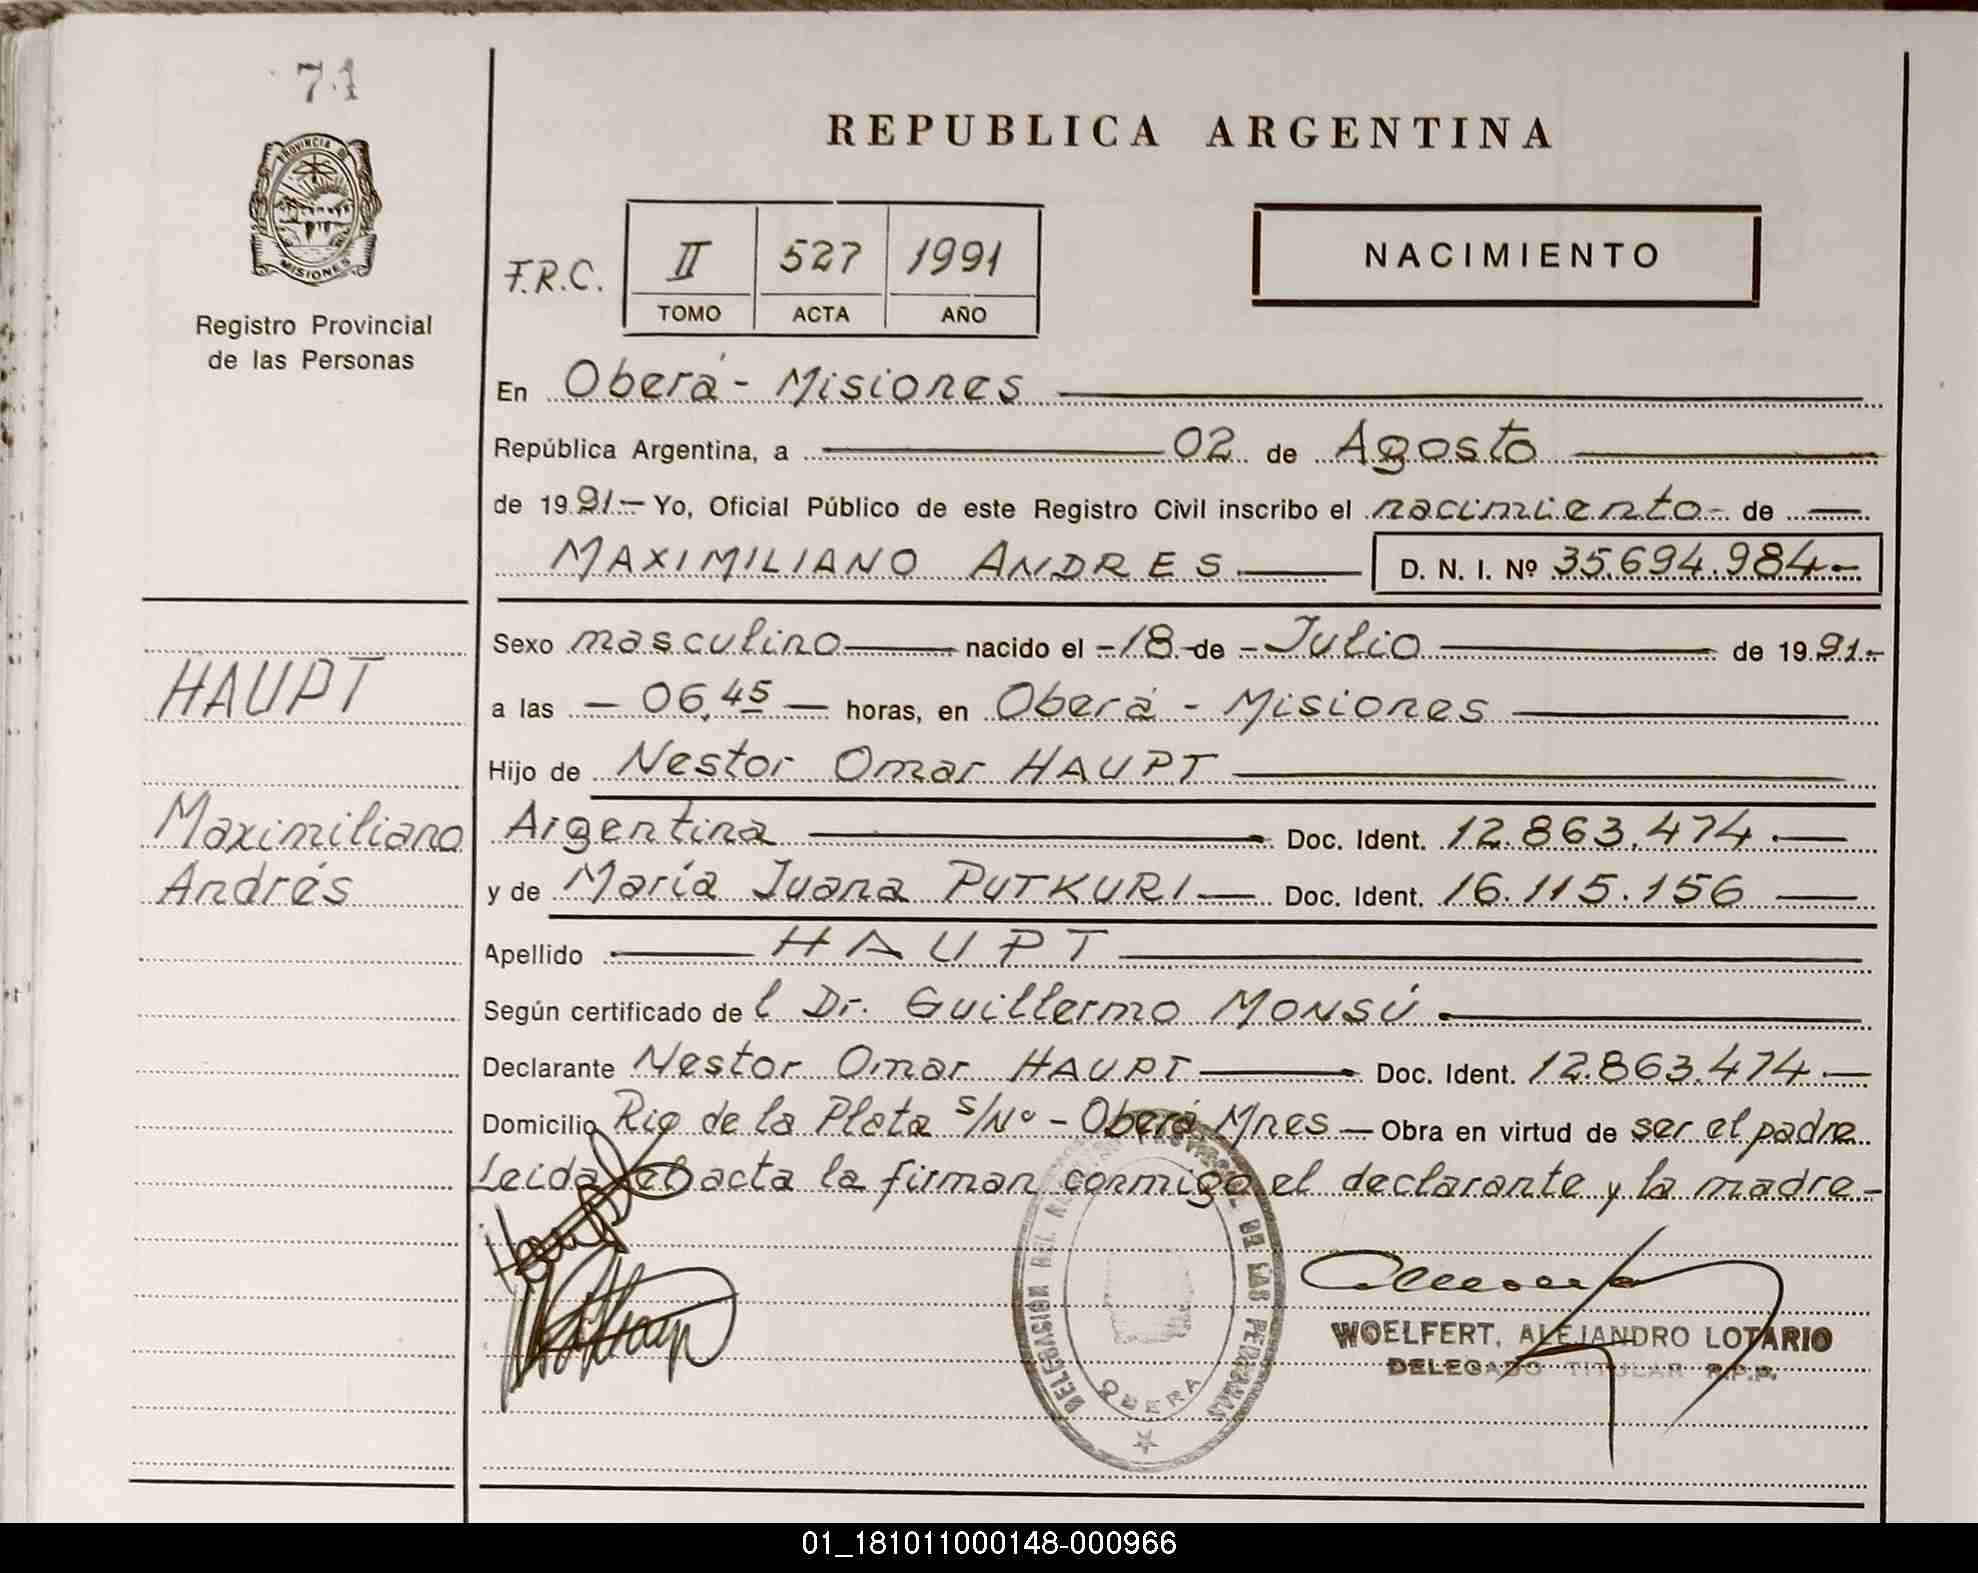 71
PROVINCIA DE
MISIONES
Registro Provincial
de las Personas
REPUBLICA ARGENTINA
F.R.C.
II 527 1991
TOMO ACTA AÑO
NACIMIENTO
En Oberá - Misiones
República Argentina, a 02 de Agosto
de 1991.- Yo, Oficial Público de este Registro Civil inscribo el nacimiento - de
MAXIMILIANO ANDRES D. N. I. Nº 35.694.984.-
Sexo masculino nacido el -18- de - Julio de 1991.-
a las - 06,45 - horas, en Oberá - Misiones
Hijo de Nestor Omar HAUPT
Argentina Doc. Ident. 12.863.474.-
y de María Juana PUTKURI - Doc. Ident. 16.115.156 -
Apellido HAUPT
Según certificado de l Dr. Guillermo MONSÚ
Declarante Nestor Omar HAUPT Doc. Ident. 12.863.474.-
Domicilio Rio de la Plata s/Nº - Oberá Mnes - Obra en virtud de ser el padre
Leida el acta la firman conmigo el declarante y la madre -
HAUPT
Maximiliano
Andrés
DE LAS PERSONAS
OBERA
WOELFERT, ALEJANDRO LOTARIO
DELEGADO TITULAR R.P.P.
01_181011000148-000966